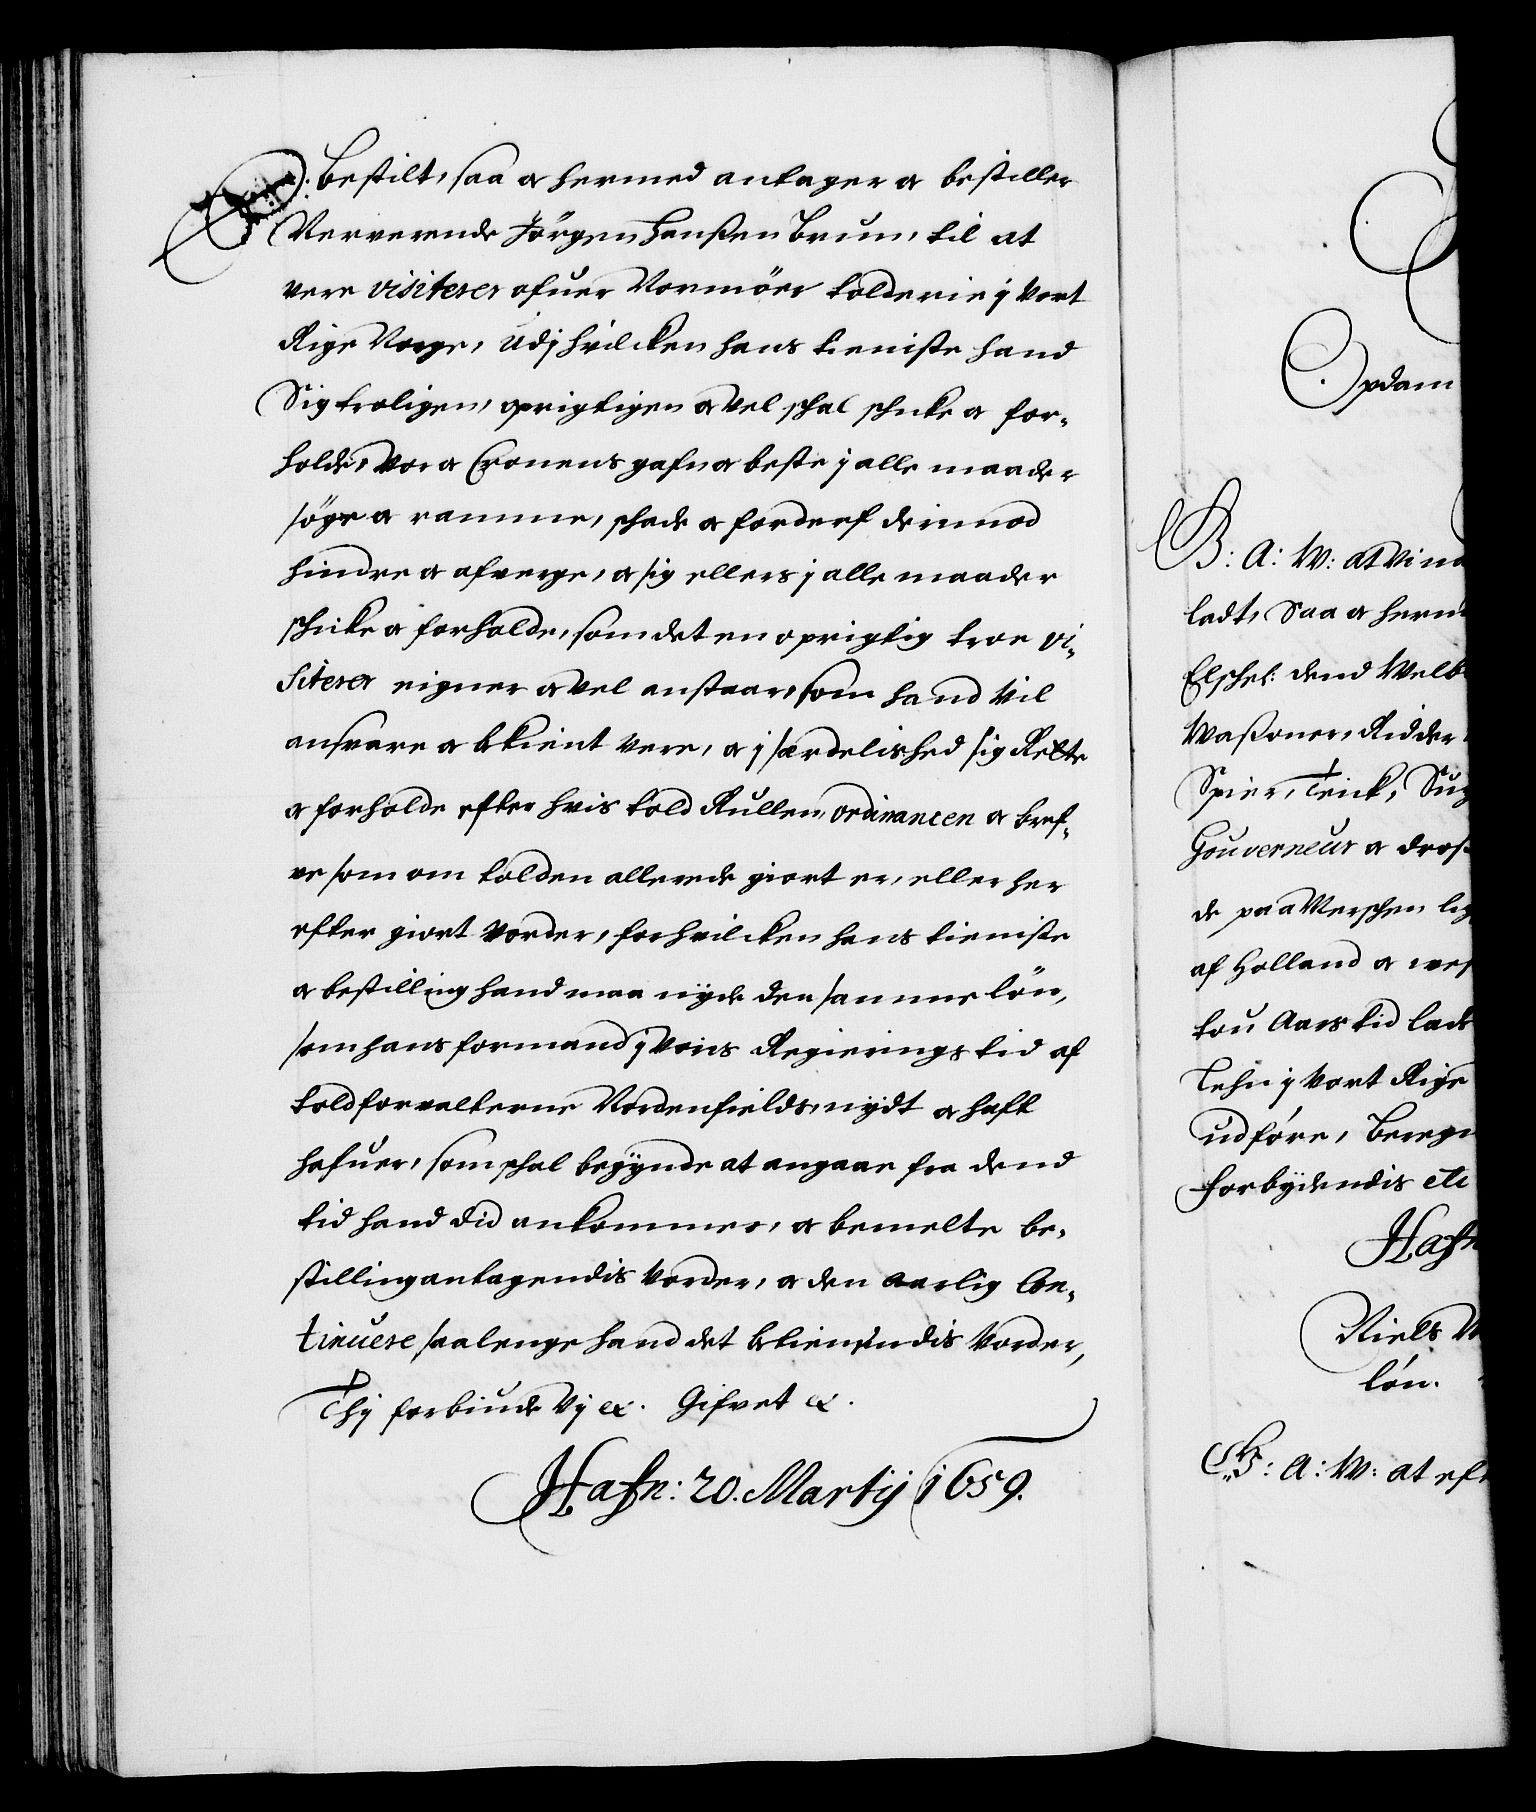 Bestilt, saa oc hermed antager oc bestiller
Nerverende Jörgen Hanßen Brun, til at
vere visiterer ofuer Normöer tolderie j Vort
Rige Norge, Udj hvilcken hans tieniste hand
Sig troligen, oprigtigen oc vel schal schicke oc for-
holde, Vor oc Cronens gafn oc beste j alle maader
söge oc ramme, schade oc forderf derimod
hindre oc afverge, oc sig ellers j alle maader
schicke oc forholde, som det en oprigtig troe vi-
siterer eigner oc vel anstaar, som hand Vil
ansvare oc bekient vere, oc j særdelished sig Rette
oc forholde efter hvis told Rullen, ordinancen oc bref-
ve som om tolden allerede giort er, eller her
efter giort Vorder, for hvilcken hans tieniste
oc bestilling hand maa nyde den samme lön,
som hans formand j Voris Regierings tid af
toldforvalterne Nordenfields, nydt oc haft
hafuer, som schal begynde at angaae fra dend
tid hand did ankommer, oc bemelte be-
stilling antagendis Vorder, oc den aarlig Con-
tinuere saalenge hand det betienendis Vorder,
Thj forbiude Vj &. Gifvet &.
Hafn: 20. Martij 1659.
Opdam
B: A: W: at Vi na
ladt, Saa oc herm
Elschel: dend Welb
Waßoner, Ridder
Spier,
Gouverneur oc Dros
de paa Werschen lig
af Holland oc wes
tou Aars tid lade
Lehn j Vort Rige
udföre, Beregn
Forbydendis etc
Hafn
Niels
lön.
G: A: W: at eft